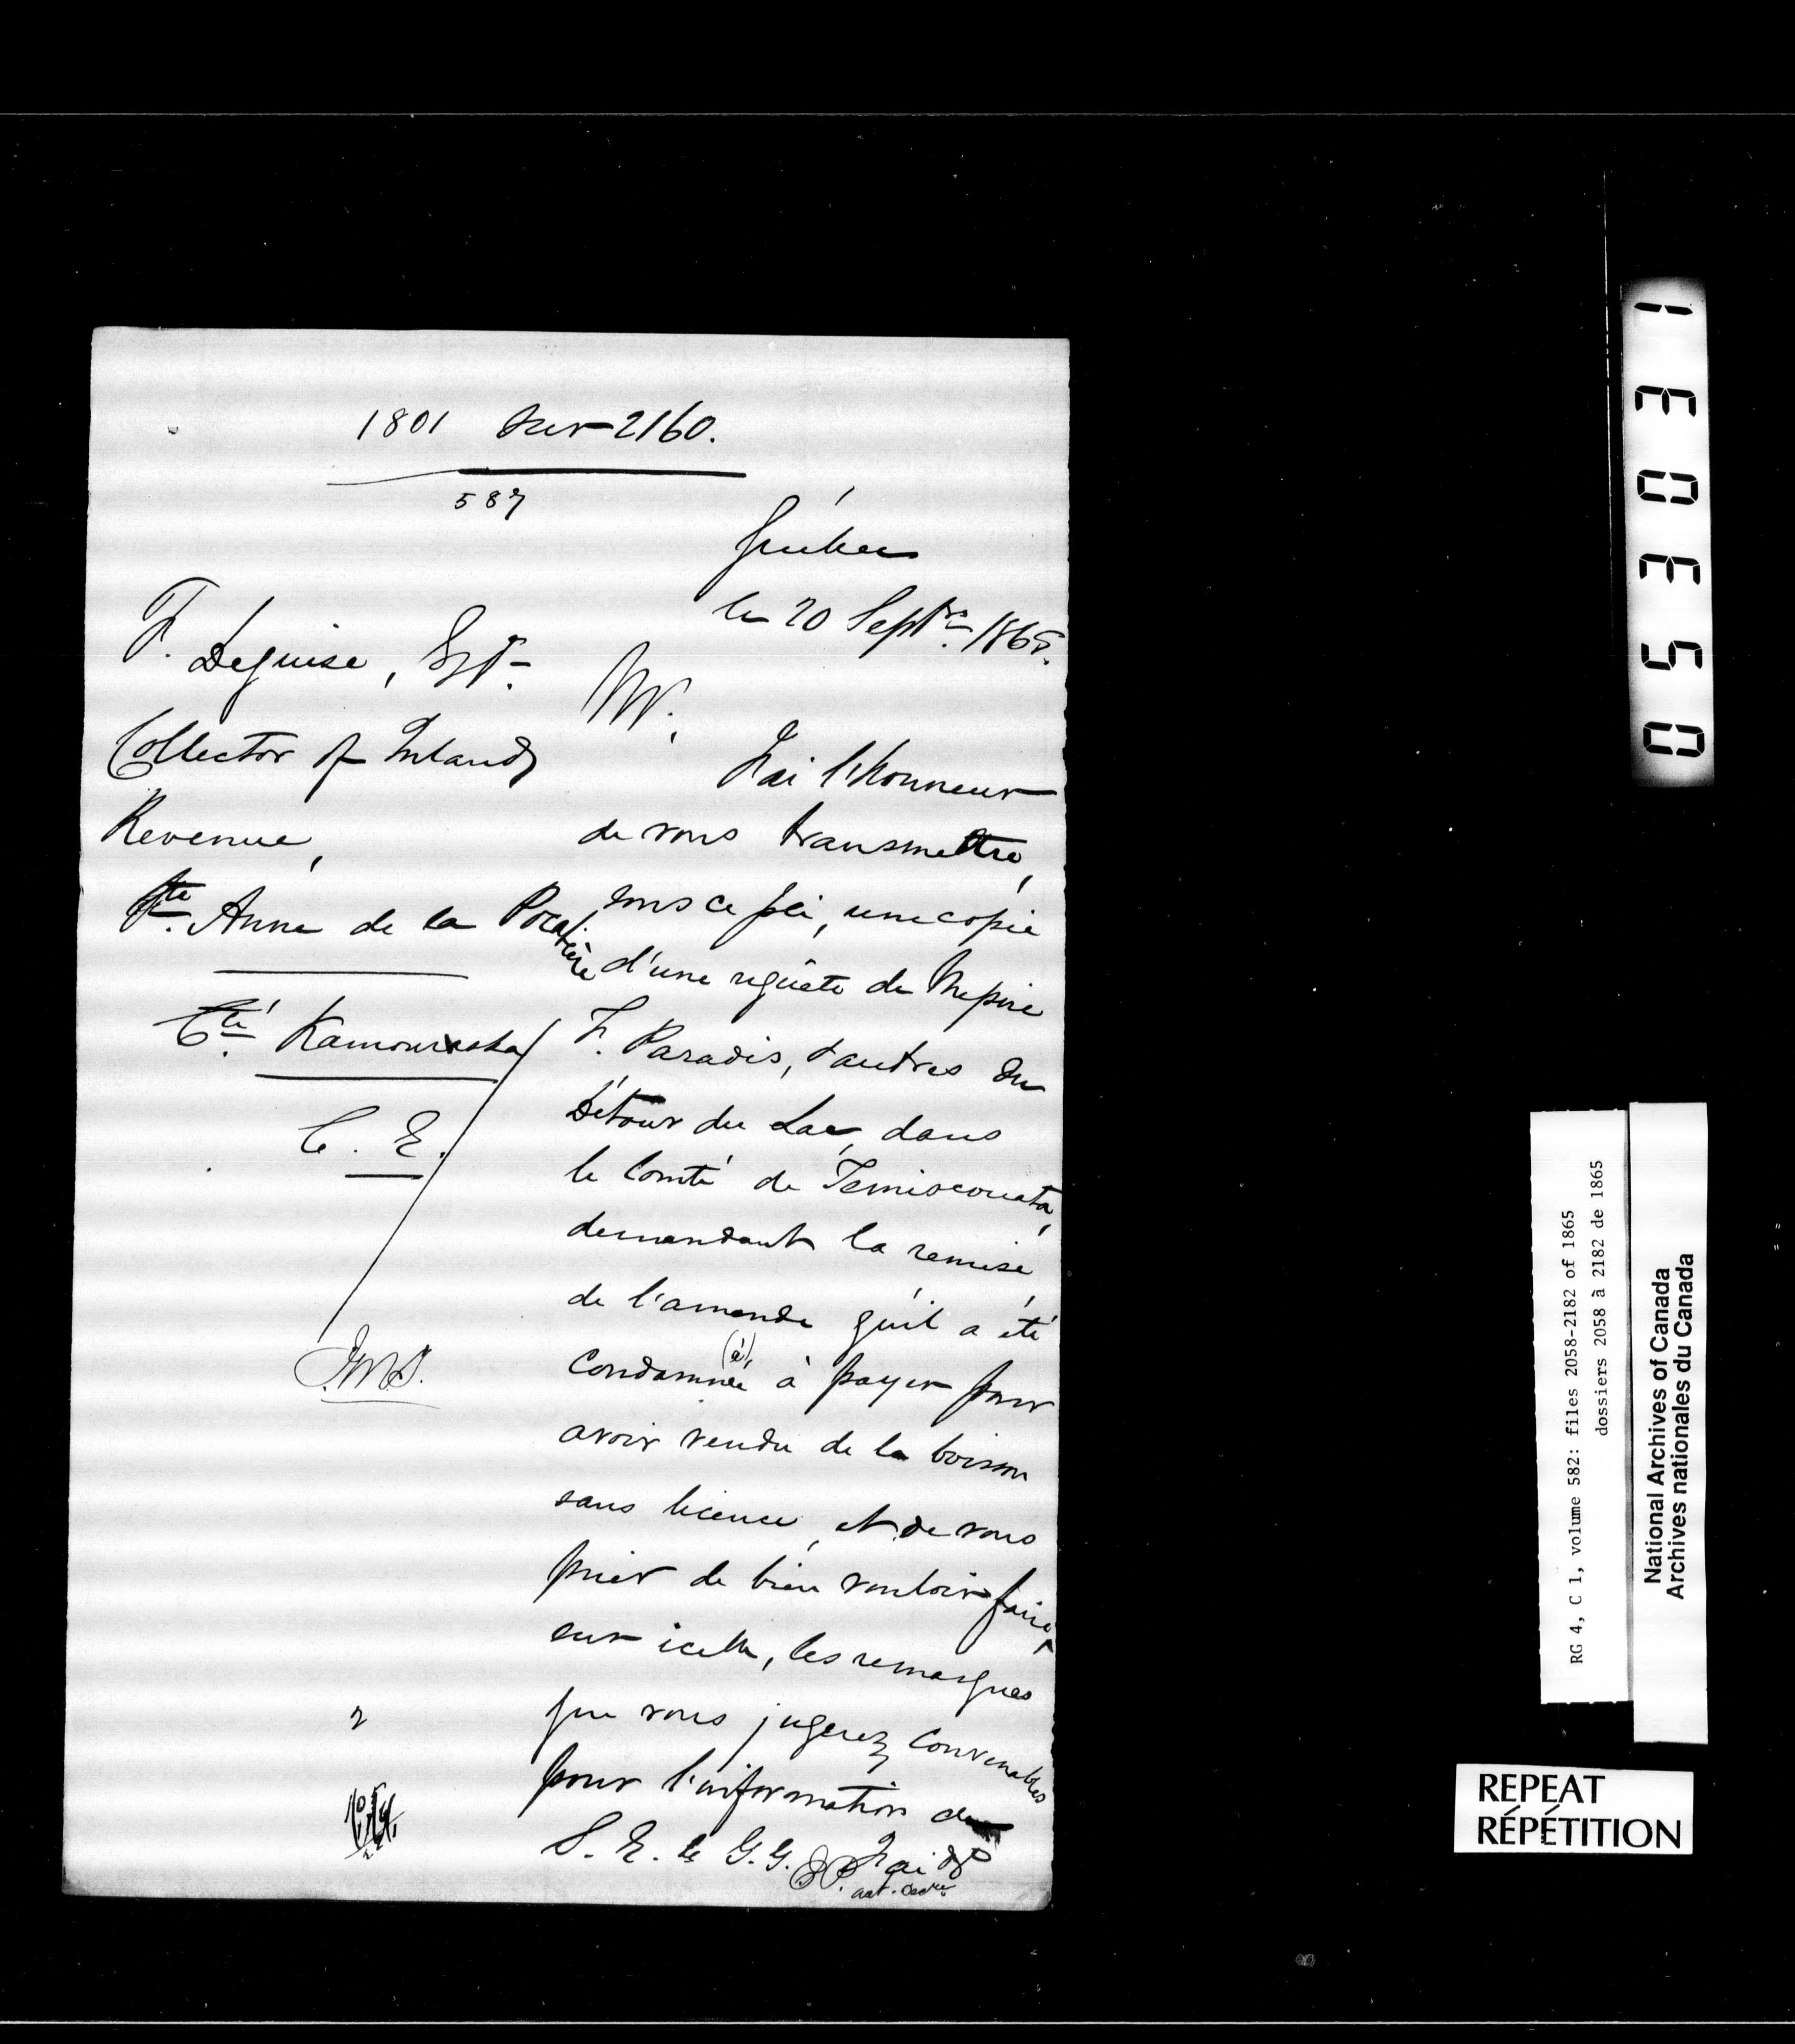 1801 sur 2160.
587
Québec
le 20 Septre. 1865.
F. Deguise, Esqr.
Collector of Inland
Revenue,
Ste. Anne de la Pocatière
Cté. Kamouraska
C. E.
J.M.S.
2
Mr.
J'ai l'honneur
de vous transmettre,
sous ce pli, une copie
d'une requête de Mepire
F. Paradis, & autres du
Détour du Lac, dans
le Comté de Temiscouata,
demandant la remise
de l'amende qu'il a été
condamnée (é) à payer pour
avoir vendu de la boisson
sans licence, et de vous
prier de bien vouloir faire,
sur icelle, les remarques
que vous jugerez convenables
pour l'information de
S. E. le G. G. J'ai &c
asst. Secre.
1
3
0
3
5
0
RG 4, C 1, volume 582: files 2058-2182 of 1865
dossiers 2058 à 2182 de 1865
National Archives of Canada
Archives nationales du Canada
REPEAT
RÉPÉTITION